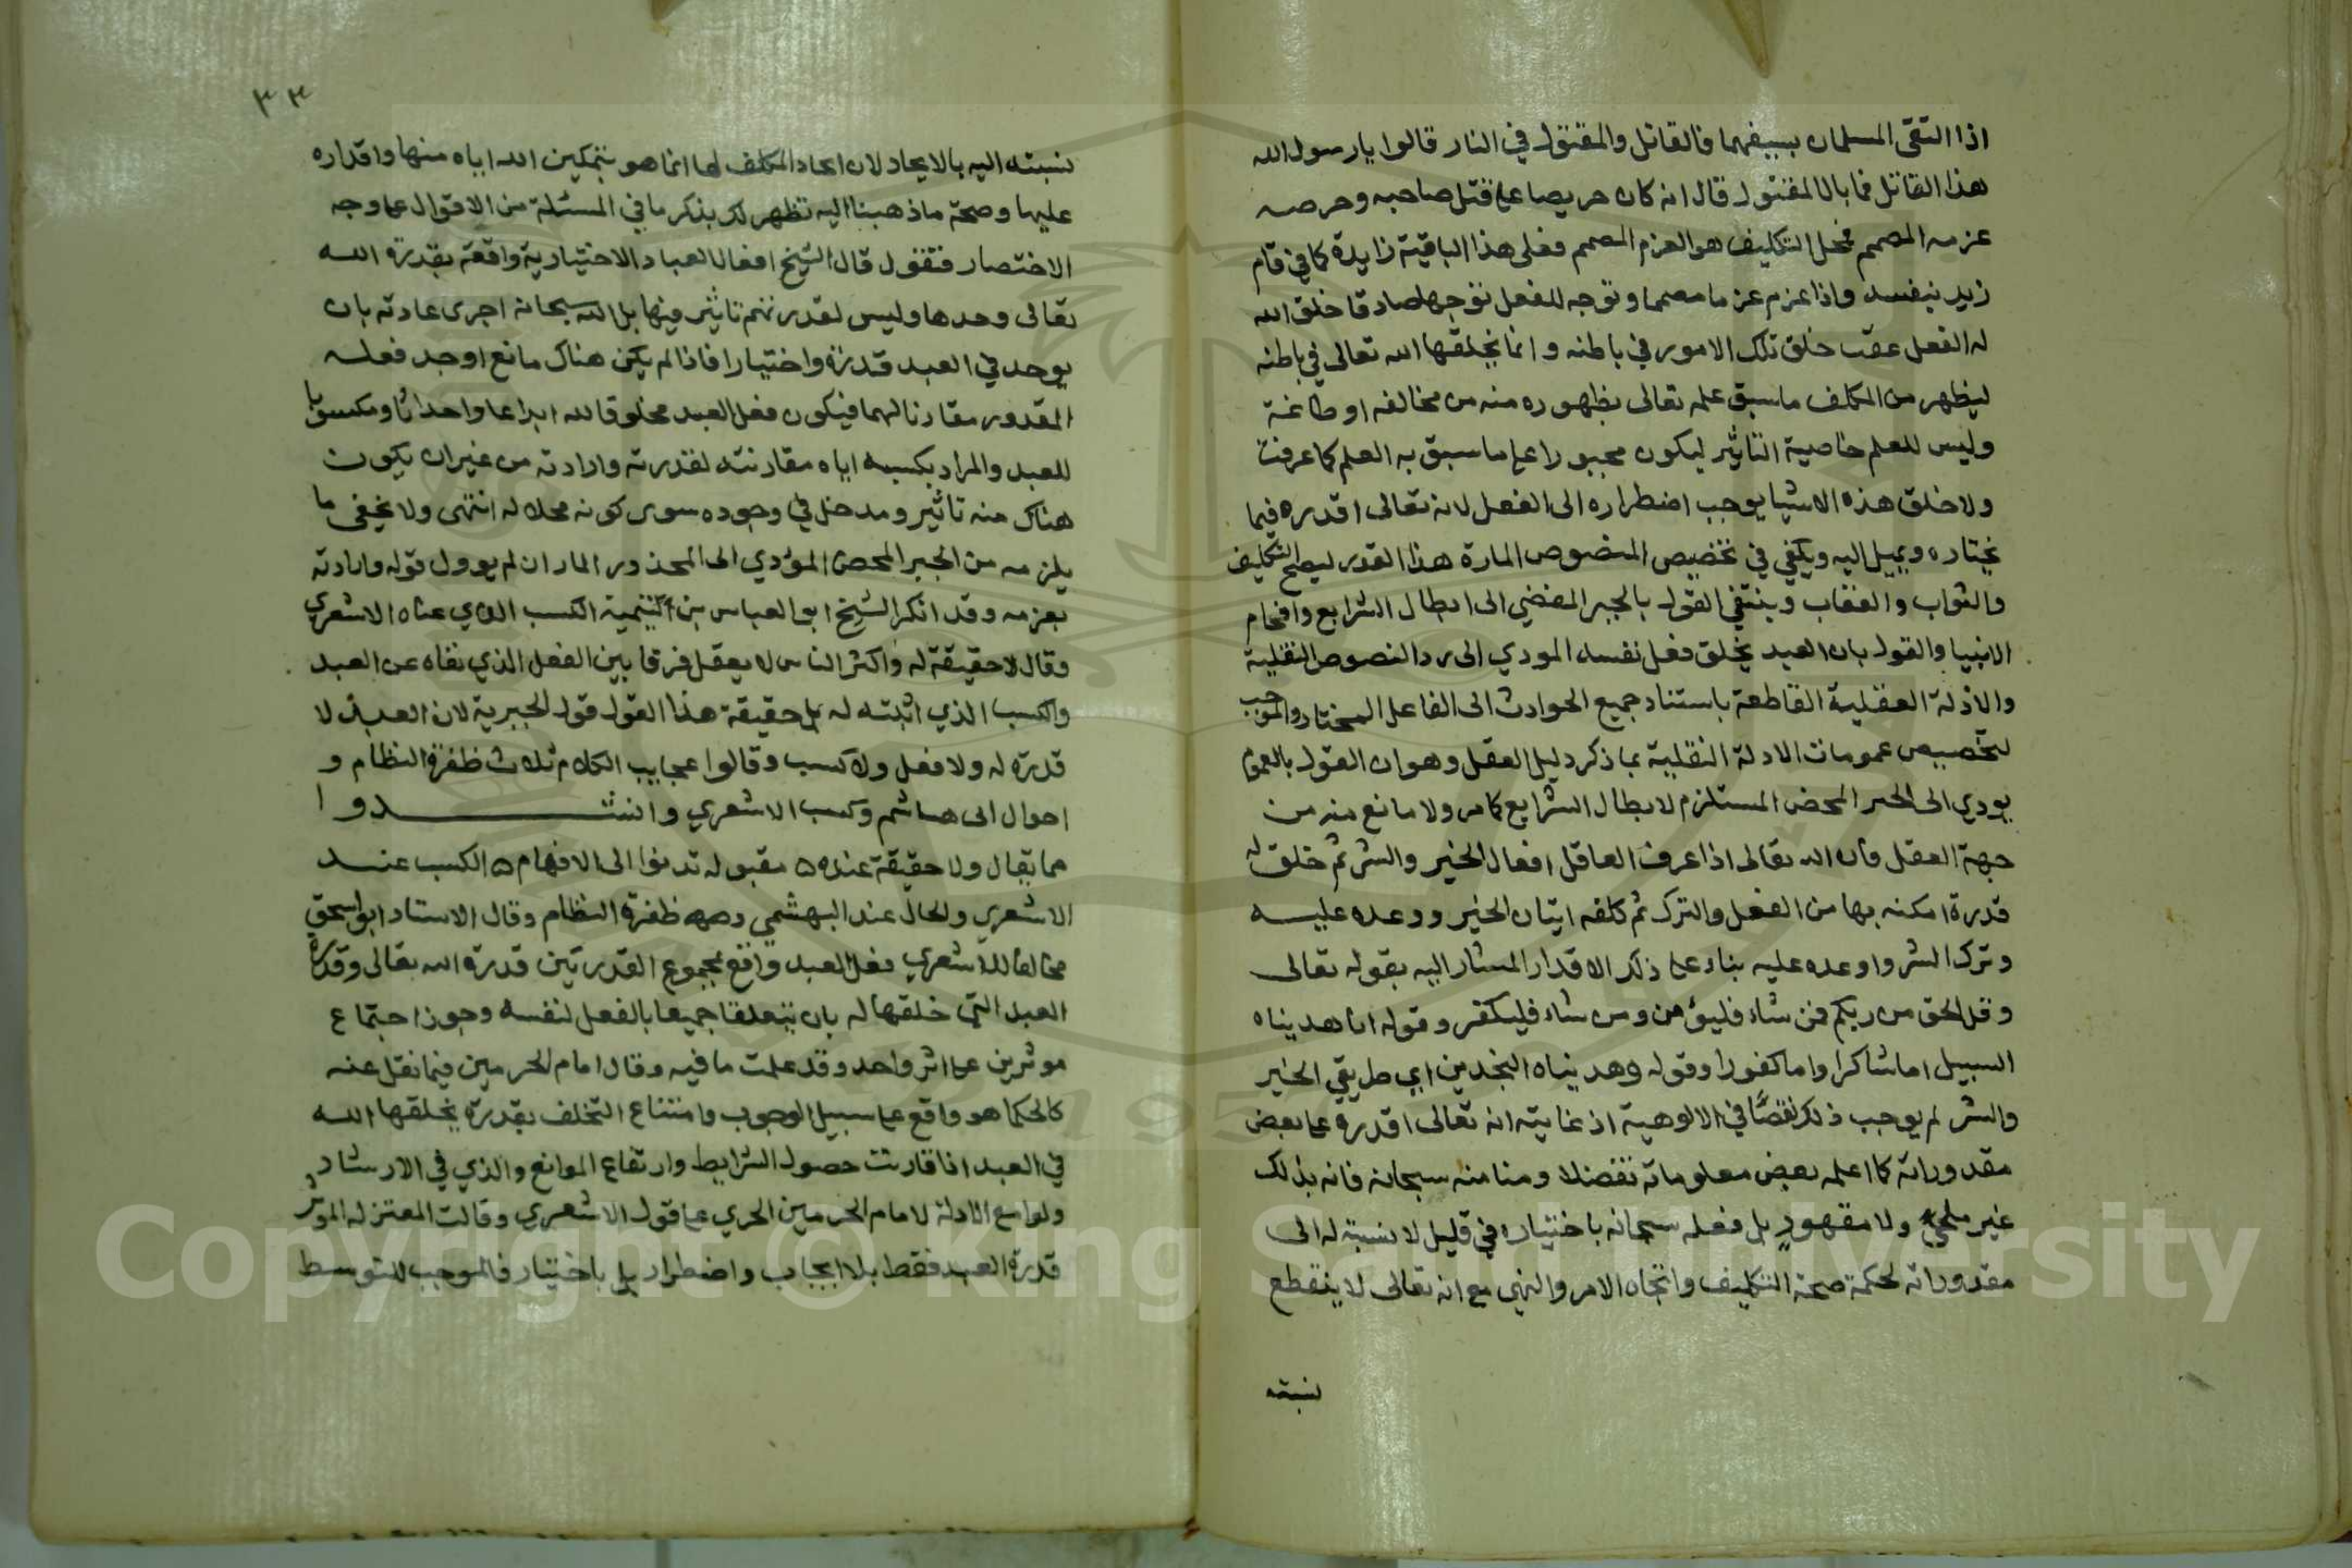 اذا التقى المسلمان بسيفهما فالقاتل والمقتول في النار قالوا يا رسول الله
هذا القاتل فما بال المقتول قال انه كان حريصا على قتل صاحبه وحرصه
عزمه المصمم فمحل التكليف هو العزم المصمم فعلى هذا الباقية زايدة كما في قام
زيد بنفسه واذا عزم عزما مصمما وتوجه للفعل توجها صادقا خلق الله
له الفعل عقب خلق تلك الامور في باطنه وانما يخلقها الله تعالى في باطنه
ليظهر من المكلف ما سبق علمه تعالى بظهوره منه من مخالفه او طاعة
وليس للعلم خاصية التاثير ليكون مجبورا على ما سبق به العلم كما عرفت
ولا خلق هذه الاشيا يوجب اضطراره الى الفعل لانه تعالى اقدره فيما
يختاره ويميل اليه ويكفي في تخصيص النصوص المارة هذا القدر ليصح التكليف
والثواب والعقاب وينتفي القول بالجبر المفضي الى ابطال الشرايع وافحام
الانبيا والقول بان العبد يخلق فعل نفسه المودي الى رد النصوص النقلية
والادلة العقلية القاطعة باستناد جميع الحوادث الى الفاعل المختار والموجب
لتخصيص عمومات الادلة النقلية بما ذكر دليل العقل وهو ان القول بالعموم
يودي الى الجبر المحض المستلزم لابطال الشرايع كما مر ولا مانع منه من
جهة العقل فان الله تعالى اذا عرف العاقل افعال الخير والشر ثم خلق له
قدرة امكنه بها من الفعل والترك ثم كلفه اتيان الخير ووعده عليه
وترك الشر واوعده عليه بناء على ذلك الاقدار المشار اليه بقوله تعالى
وقل الحق من ربكم فمن شاء فليؤمن ومن شاء فليكفر وقوله انا هديناه
السبيل اما شاكرا واما كفورا وقوله وهديناه النجدين اي طريقي الخير
والشر لم يوجب ذلك نقصًا في الالوهية اذ غايته انه تعالى اقدره على بعض
مقدوراته كما اعلمه بعض معلوماته تفضلا ومنا منه سبحانه فانه بذلك
غير ملجئ ولا مقهور بل فعله سبحانه باختياره في قليل لا نسبة له الى
مقدوراته لحكمة صحة التكليف واتجاه الامر والنهي مع انه تعالى لا ينقطع
نسبته
٣٣
نسبته اليه بالايجاد لان ايجاد المكلف لها انما هو بتمكين الله اياه منها واقداره
عليها وصحة ما ذهبنا اليه تظهر لك بذكر ما في المسئلة من الاقوال على وجه
الاختصار فنقول قال الشيخ افعال العباد الاختيارية واقعة بقدرة الله
تعالى وحدها وليس لقدرتهم تاثير فيها بل الله سبحانه اجرى عادته بان
يوجد في العبد قدرة واختيارا فاذا لم يكن هناك مانع اوجد فعله
المقدور مقارنا لهما فيكون فعل العبد مخلوقا لله ابداعا واحداثا ومكسوبا
للعبد والمراد بكسبه اياه مقارنته لقدرته وارادته من غير ان يكون
هناك منه تاثير ومدخل في وجوده سوى كونه محلا له انتهى ولا يخفى ما
يلزمه من الجبر المحض المؤدي الى المحذور المار ان لم يوول قوله وارادته
بعزمه وقد انكر الشيخ ابو العباس بن تيمية الكسب الذي عناه الاشعري
وقال لا حقيقة له واكثر الناس لا يعقل فرقا بين الفعل الذي نفاه عن العبد
والكسب الذي اثبته له بل حقيقة هذا القول قول الجبرية لان العبد لا
قدرة له ولا فعل ولا كسب وقالوا عجايب الكلام ثلاث ظفرة النظام و
احوال ابي هاشم وكسب الاشعري وانشدوا
مما يقال ولا حقيقة عنده ه مقبوله تدنوا الى الافهام ه الكسب عند
الاشعري والحال عند البهشمي وصه ظفرة النظام وقال الاستاد ابو اسحق
مخالفا للاشعري فعل العبد واقع بمجموع القدرتين قدرة الله تعالى وقدرة
العبد التي خلقها له بان يتعلقا جميعا بالفعل لنفسه وجوز اجتماع
موثرين على اثر واحد وقد علمت ما فيه وقال امام الحرمين فيما نقل عنه
كالحكما هو واقع على سبيل الوجوب وامتناع التخلف بقدرة يخلقها الله
في العبد اذا قارنت حصول الشرايط وارتفاع الموانع والذي في الارشاد
ولوامع الادلة لامام الحرمين الجري على قول الاشعري وقالت المعتزله الموثر
قدرة العبد فقط بلا ايجاب واضطرار بل باختيار فالموجب للتوسط
Copyright © King Saud University